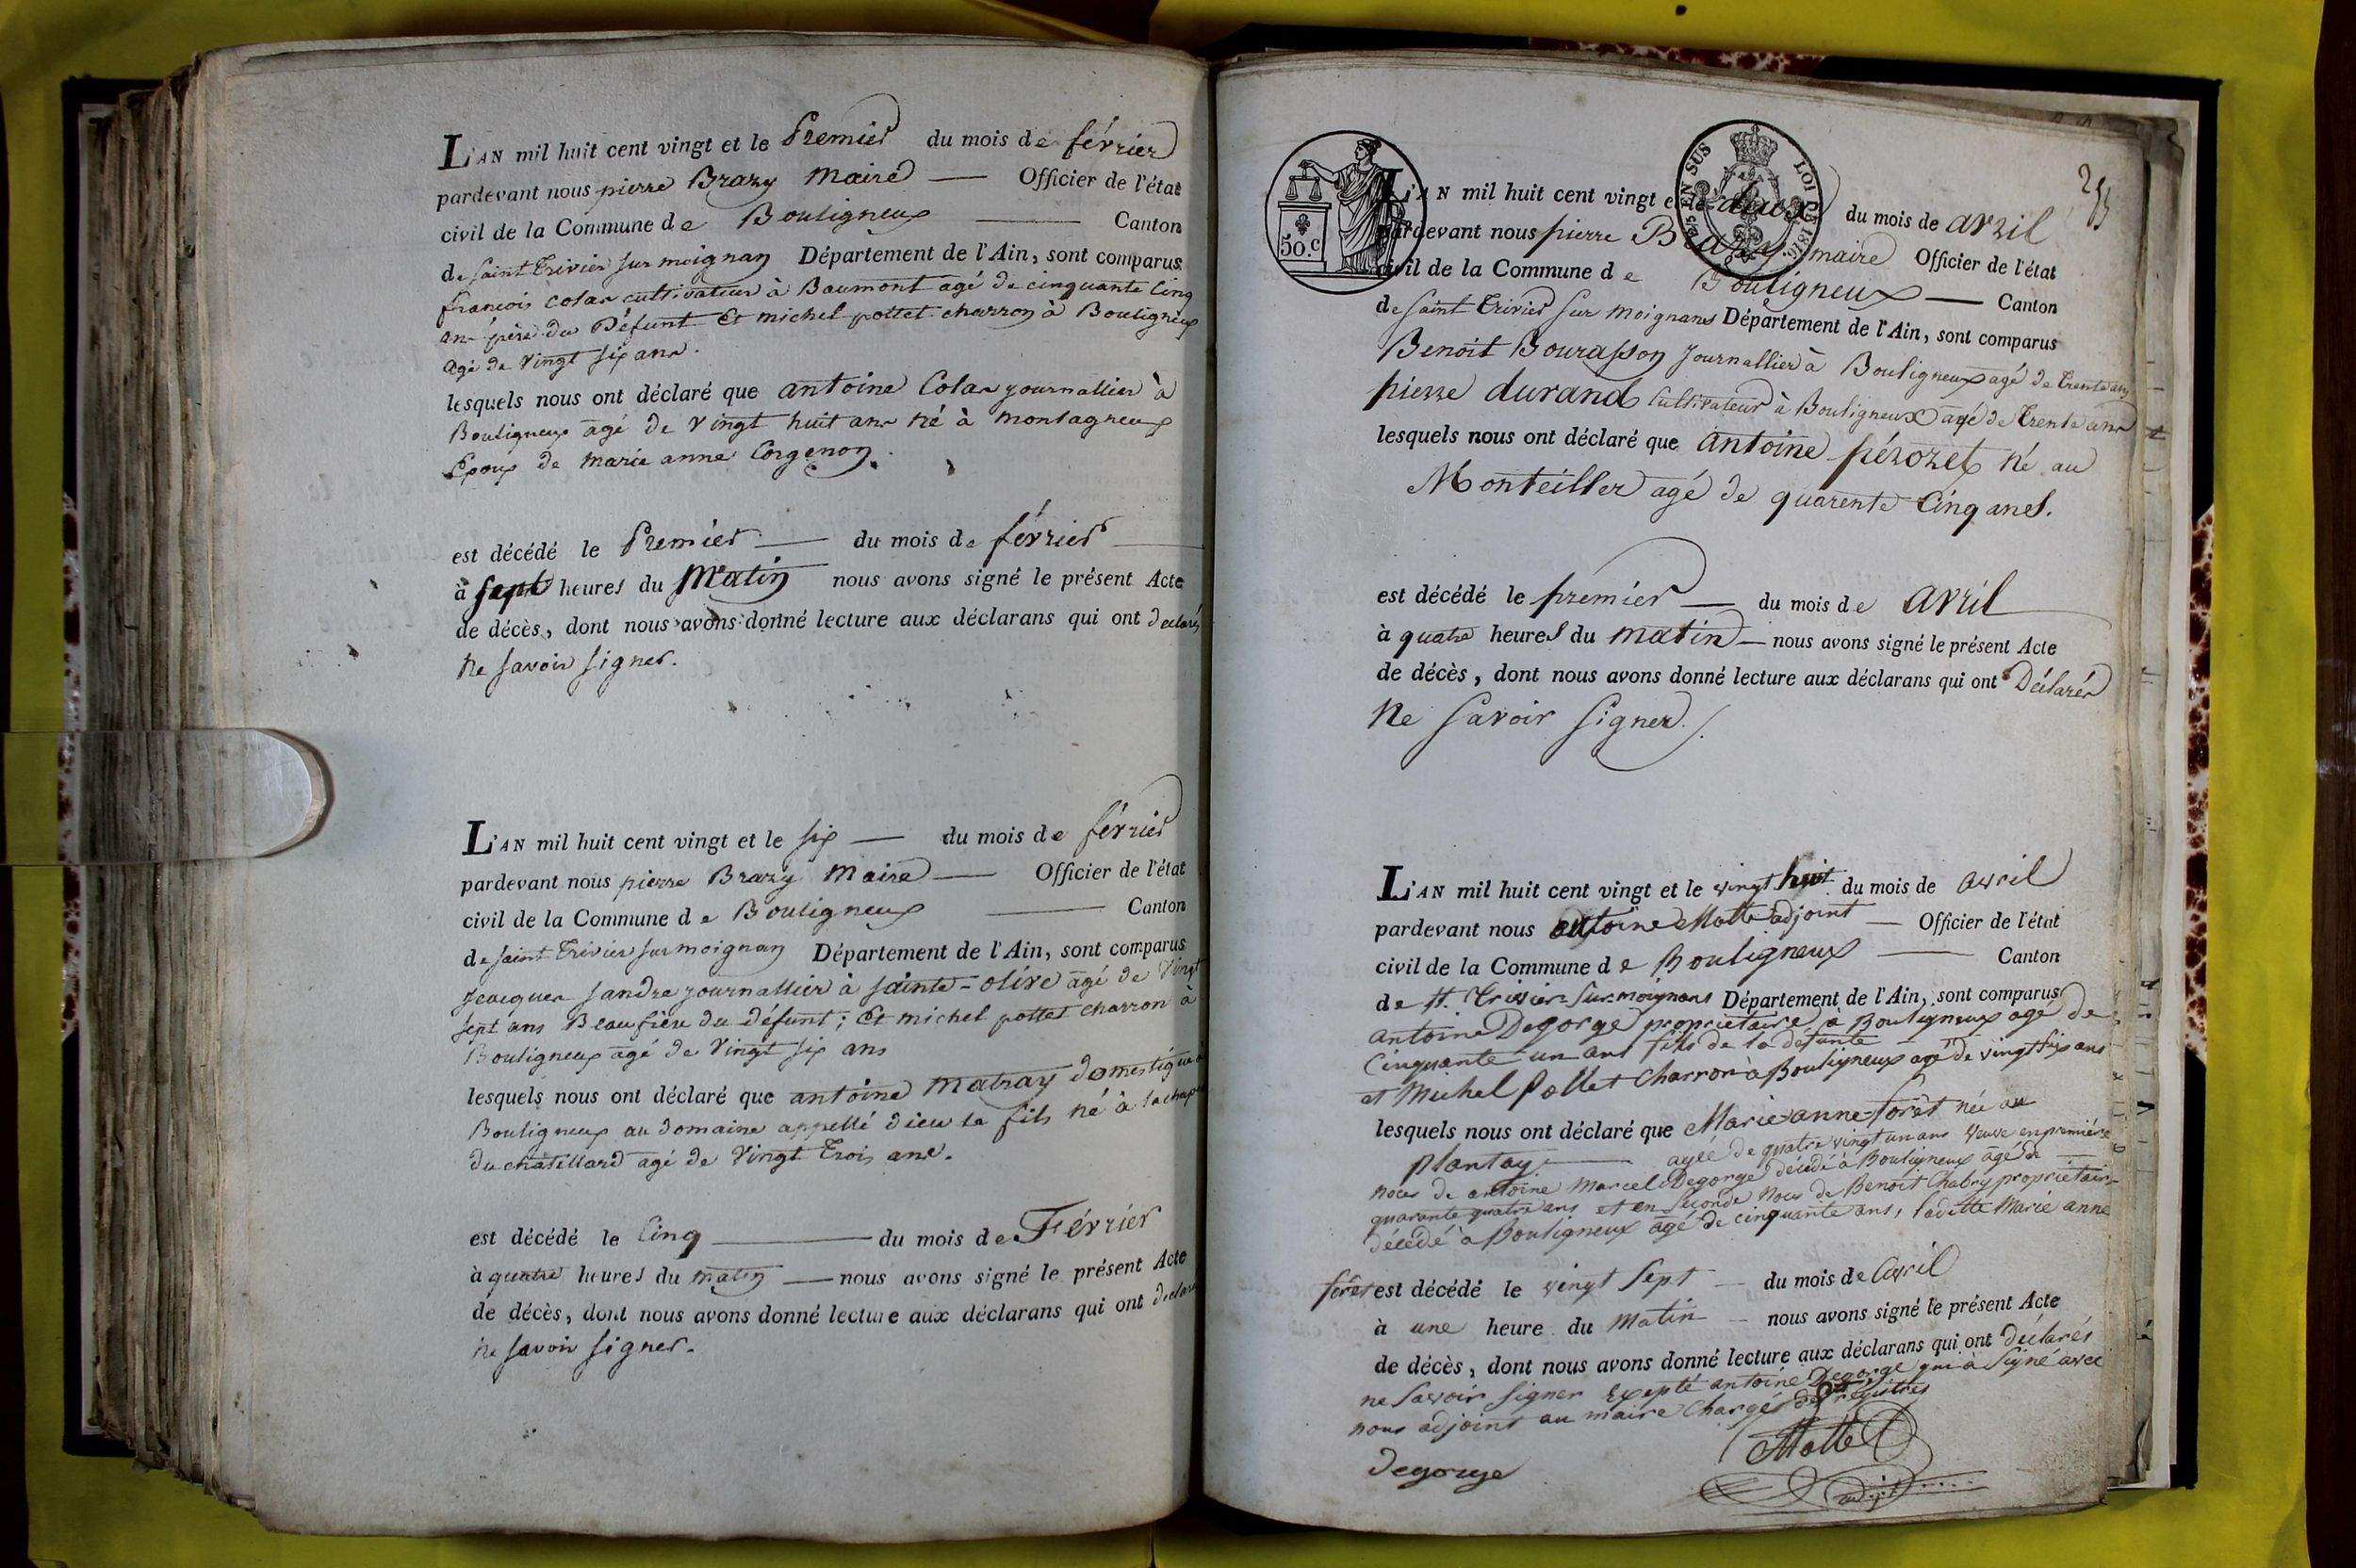 L'AN mil huit cent vingt et le Premier du mois de février
pardevant nous pierre Brazy Maire — Officier de l'état
civil de la Commune de Bouligneux — Canton
de saint Trivier sur moignan Département de l'Ain, sont comparus
francois Colas cultivateur à Baumont agé de cinquante Cinq
ans père du Défunt Et michel pottet charron à Bouligneux
agé de vingt six ans.
lesquels nous ont déclaré que antoine Colas journallier à
Bouligneux agé de vingt huit ans né à montagneux
Epoux de marie anne Corgenon.
est décédé le Premier — du mois de février —
à sept heures du Matin nous avons signé le présent Acte
de décès, dont nous avons donné lecture aux déclarans qui ont declarés
ne savoir signer.
L'AN mil huit cent vingt et le six — du mois de février
pardevant nous pierre Brazy Maire — Officier de l'état
civil de la Commune de Bouligneux — Canton
de saint Trivier sur moignan Département de l'Ain, sont comparus
Jeacques sandre journallier à sainte-olive agé de vingt
sept ans Beau frère du défunt; Et michel pottet charron à
Bouligneux agé de vingt six ans
lesquels nous ont déclaré que antoine matray domestique à
Bouligneux au domaine appellé dieu le fils né à la chapelle
du chatellard agé de vingt Trois ans.
est décédé le Cinq — du mois de Février
à quatre heures du matin — nous avons signé le présent Acte
de décès, dont nous avons donné lecture aux déclarans qui ont declarés
ne savoir signer.
50.c
EN SUS
LOI
25
L'AN mil huit cent vingt et le deux du mois de avril
pardevant nous pierre Brazy maire Officier de l'état
civil de la Commune de Bouligneux — Canton
de saint Trivier sur moignans Département de l'Ain, sont comparus
Benoit Bourasson Journallier à Bouligneux agé de trente ans
pierre durand Cultivateur à Bouligneux agé de trente ans
lesquels nous ont déclaré que antoine pérozet né au
Monteiller agé de quarente Cinq anes.
est décédé le premier — du mois de avril
à quatre heures du matin — nous avons signé le présent Acte
de décès, dont nous avons donné lecture aux déclarans qui ont Déclarés
ne savoir signer.
L'AN mil huit cent vingt et le vingt huit du mois de avril
pardevant nous antoine Motte adjoint — Officier de l'état
civil de la Commune de Bouligneux — Canton
de st. Trivier sur moignans Département de l'Ain, sont comparus
antoine Degorge propriétaire à Bouligneux agé de
Cinquante un ans fils de la défunte
et Michel Pottet Charron à Bouligneux agé de vingt six ans
lesquels nous ont déclaré que Marie anne forêt née au
plantay — agée de quatre vingt un ans veuve en première
noces de antoine Marcel Degorge décédé à Bouligneux agé de —
quarante quatre ans et en seconde noces de Benoit Chabry propriétaire
décédé à Bouligneux agé de cinquante ans, ladite Marie anne
forêt est décédé le vingt sept — du mois de avril
à une heure du matin — nous avons signé le présent Acte
de décès, dont nous avons donné lecture aux déclarans qui ont déclarés
ne savoir signer Expepté antoine Degorge qui à signé avec
nous adjoint au maire Chargés des registres
Motte
degorge
adjt